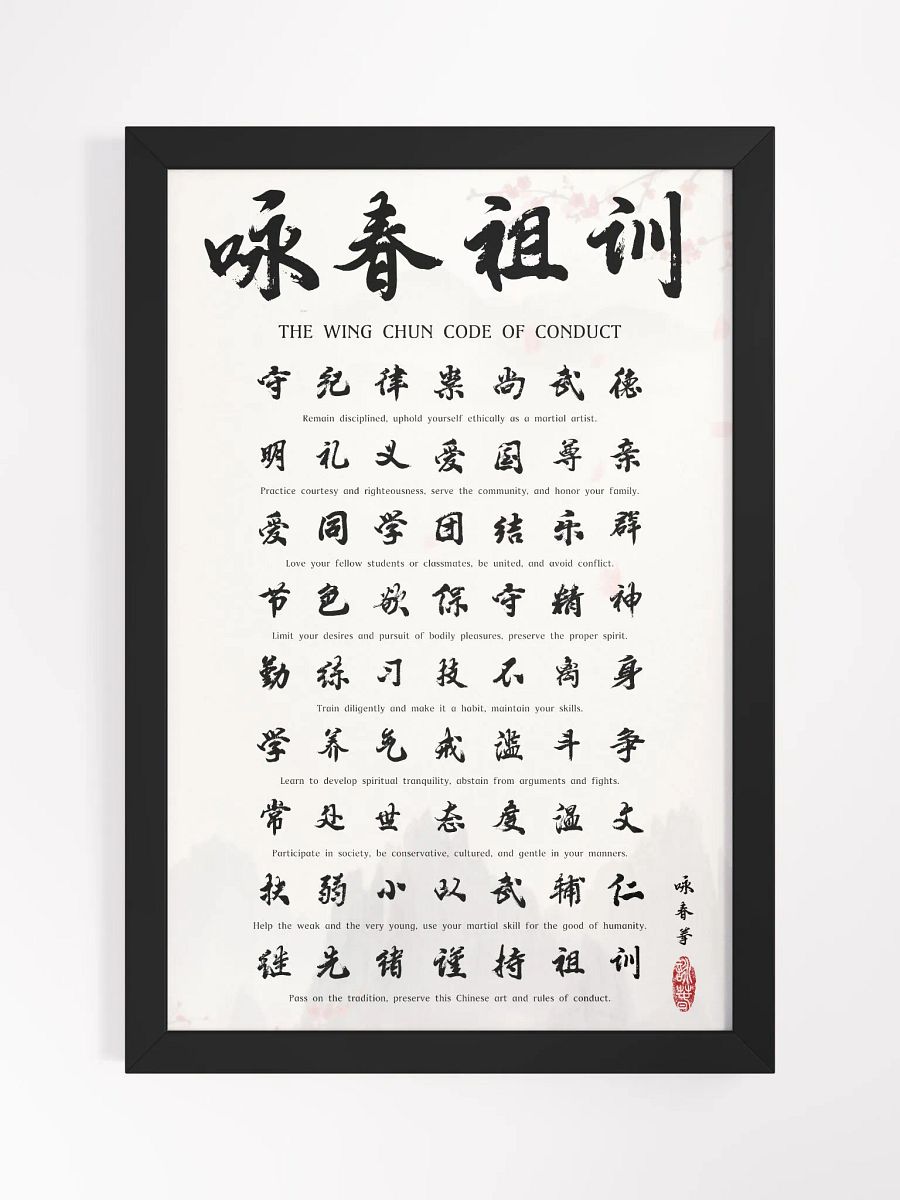 咏春祖训
THE WING CHUN CODE OF CONDUCT
守纪律崇尚武德
Remain disciplined, uphold yourself ethically as a martial artist.
明礼义爱国尊亲
Practice courtesy and righteousness, serve the community, and honor your family.
爱同学团结乐群
Love your fellow students or classmates, be united, and avoid conflict.
节色欲保守精神
Limit your desires and pursuit of bodily pleasures, preserve the proper spirit.
勤练习技不离身
Train diligently and make it a habit, maintain your skills.
学养气戒滥斗争
Learn to develop spiritual tranquility, abstain from arguments and fights.
常处世态度温文
Participate in society, be conservative, cultured, and gentle in your manners.
扶弱小以武辅仁
Help the weak and the very young, use your martial skill for the good of humanity.
继先绪谨持祖训
Pass on the tradition, preserve this Chinese art and rules of conduct.
咏春拳
詠春